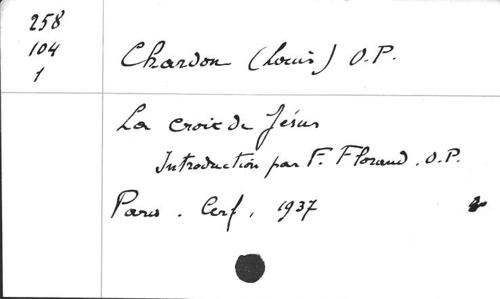 258
104
1
Chardon (Louis) O.P.
La Croix de Jésus
Introduction par F. Florand, O.P.
Paris. Cerf, 1937